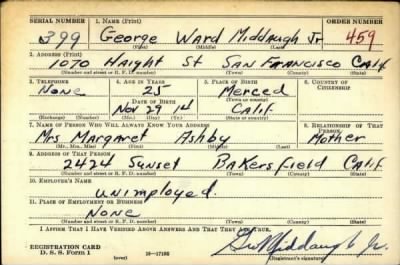 SERIAL NUMBER 1. NAME (Print) ORDER NUMBER
399 George Ward Middaugh Jr 459
(First) (Middle) (Last)
2. ADDRESS (Print)
1070 Haight St San Francisco Calif
(Number and street or R. F. D. number) (Town) (County) (State)
3. TELEPHONE 4. AGE IN YEARS 5. PLACE OF BIRTH 6. COUNTRY OF CITIZENSHIP
None 25 Merced
DATE OF BIRTH (Town or county)
Nov 29 14 Calif.
(Mo.) (Day) (Yr.) (State or country)
7. NAME OF PERSON WHO WILL ALWAYS KNOW YOUR ADDRESS 8. RELATIONSHIP OF THAT PERSON
Mrs Margaret Ashby Mother
(Mr., Mrs., Miss) (First) (Middle) (Last)
9. ADDRESS OF THAT PERSON
2424 Sunset Bakersfield Calif.
(Number and street or R. F. D. number) (Town) (County) (State)
10. EMPLOYER'S NAME
unimployed.
11. PLACE OF EMPLOYMENT OR BUSINESS
None
(Number and street or R. F. D. number) (Town) (County) (State)
I AFFIRM THAT I HAVE VERIFIED ABOVE ANSWERS AND THAT THEY ARE TRUE.
REGISTRATION CARD Geo W Middaugh Jr.
D. S. S. Form 1 (over) (Registrant's signature)